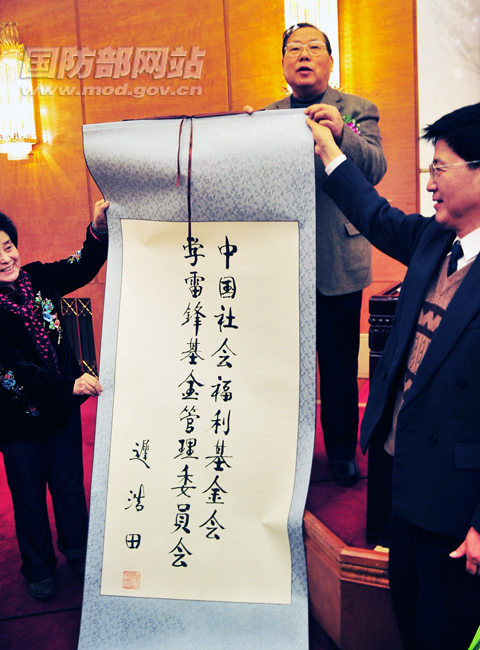 国防部网站
www.mod.gov.cn
中国社会福利基金会
学雷锋基金管理委员会
遲浩田